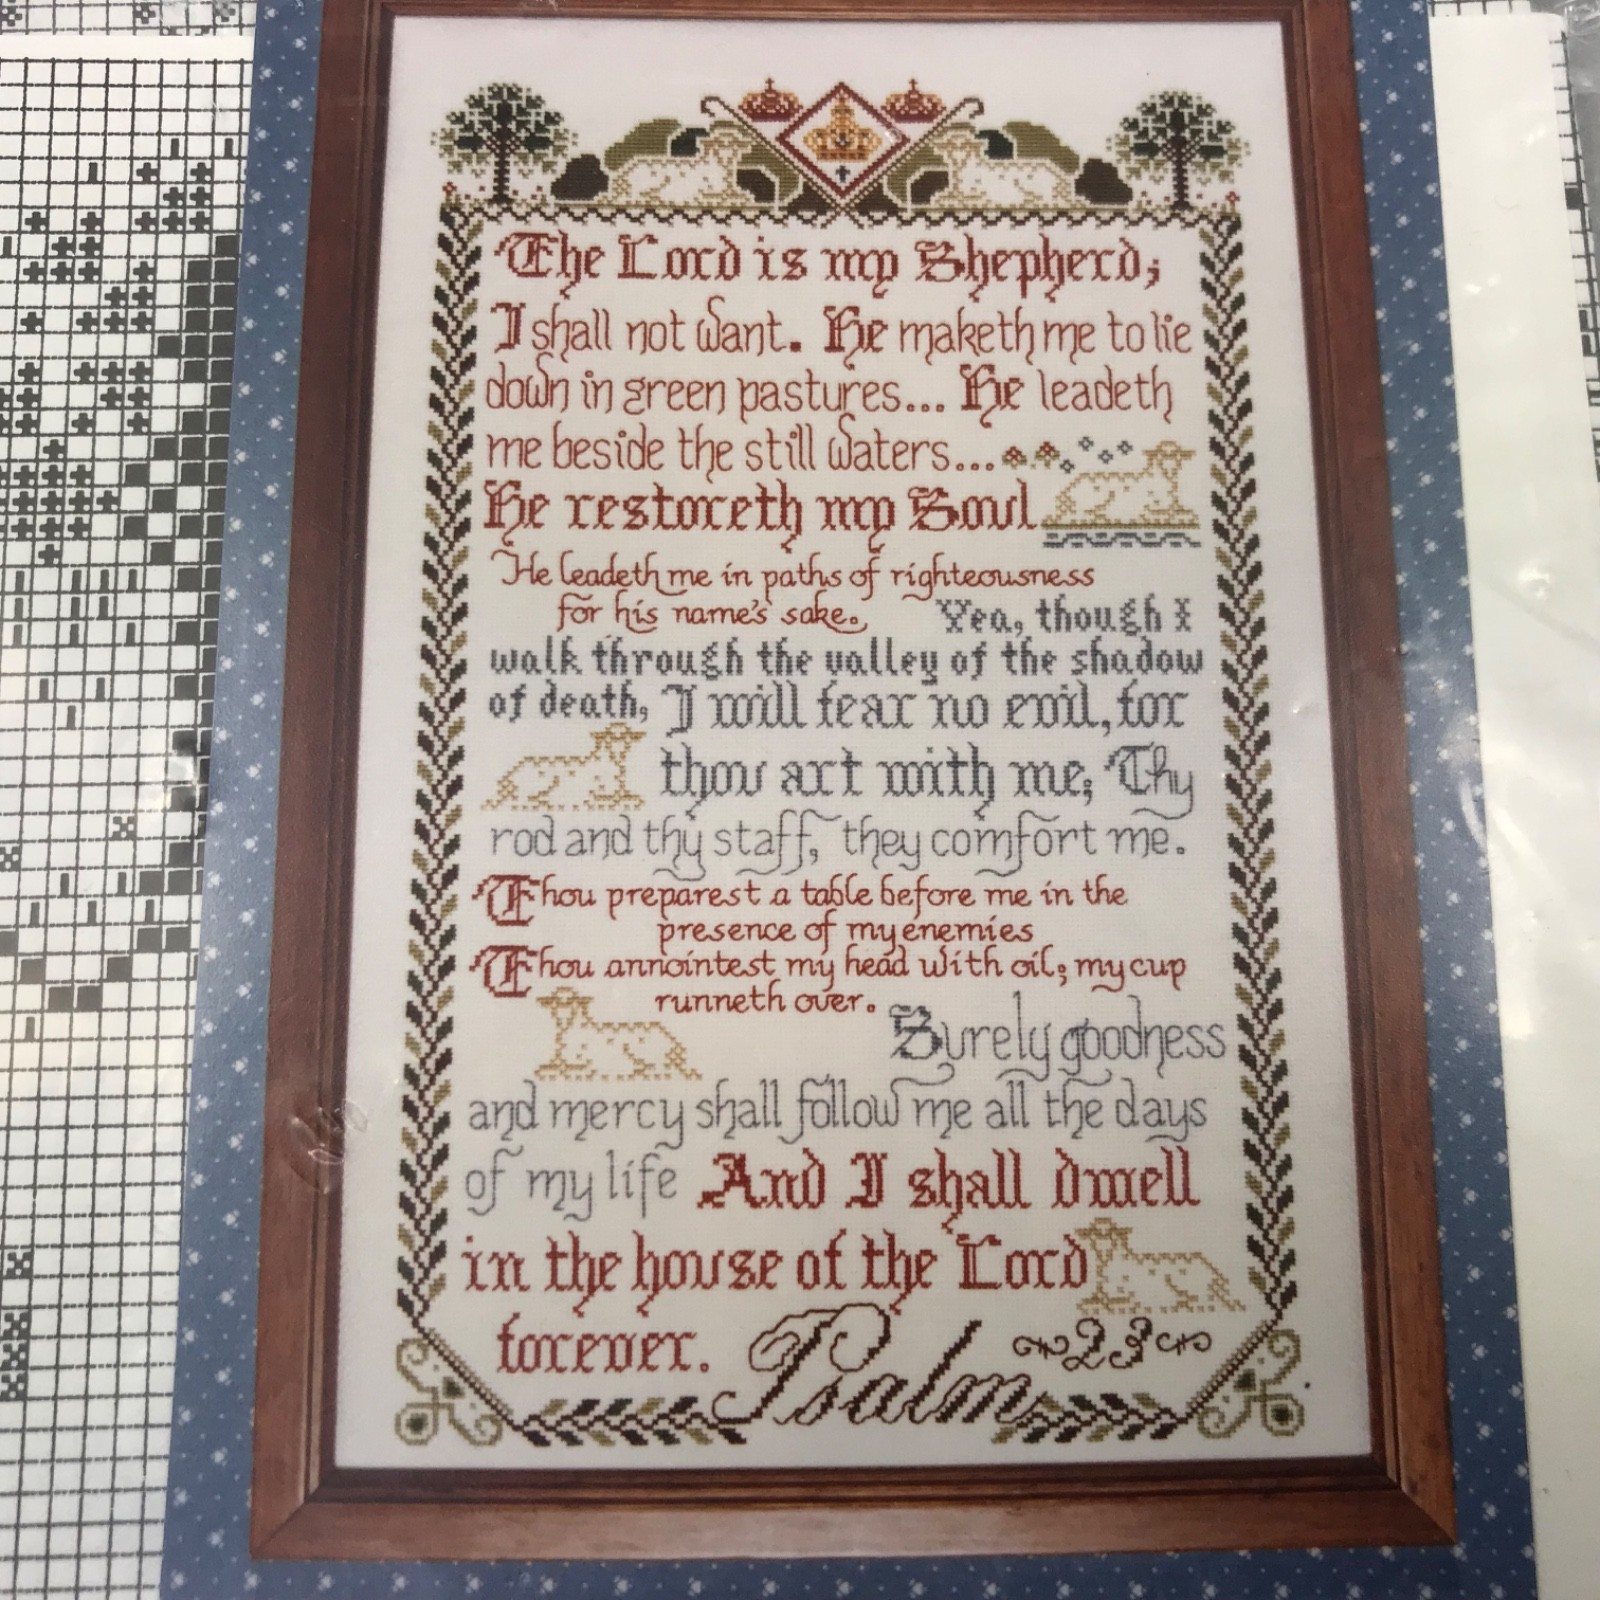 The Lord is my Shepherd;
I shall not want. He maketh me to lie
down in green pastures... He leadeth
me beside the still waters...
He restoreth my Soul
He leadeth me in paths of righteousness
for his name's sake. Yea, though I
walk through the valley of the shadow
of death, I will fear no evil, for
thou art with me; Thy
rod and thy staff, they comfort me.
Thou preparest a table before me in the
presence of my enemies
Thou annointest my head with oil; my cup
runneth over. Surely goodness
and mercy shall follow me all the days
of my life And I shall dwell
in the house of the Lord
forever. Psalm 23